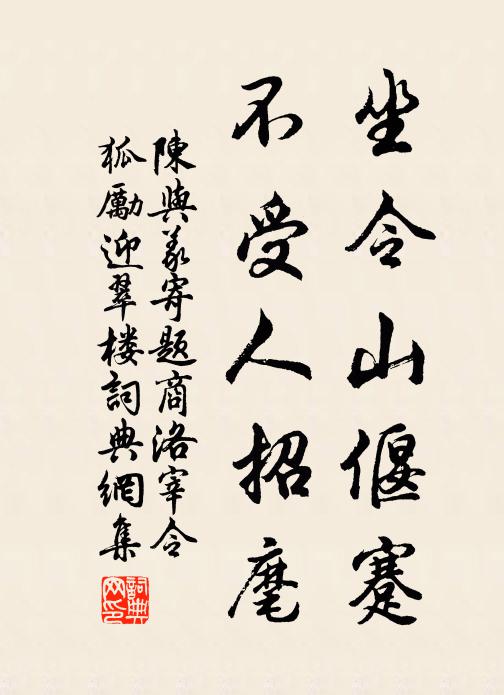 坐令山偃蹇
不受人招麾
陳與義寄題商洛宰令
狐勵迎翠樓詞典網集
詞典
网印